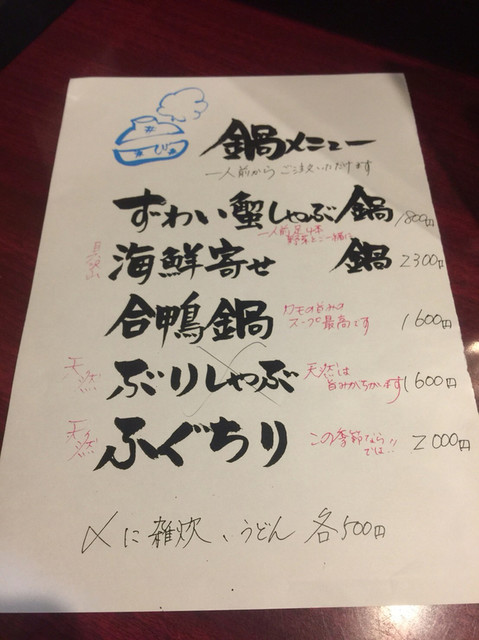 鍋メニュー
一人前からご注文いただけます
ずわい蟹しゃぶ鍋 1800円
一人前足4本
野菜とご一緒に
具沢山 海鮮寄せ鍋 2300円
合鴨鍋 カモの旨みの
スープ最高です 1600円
天然 ぶりしゃぶ 天然は
旨みがちがいます 1600円
天然 ふぐちり この季節なら
では!! 2000円
〆に雑炊、うどん 各500円